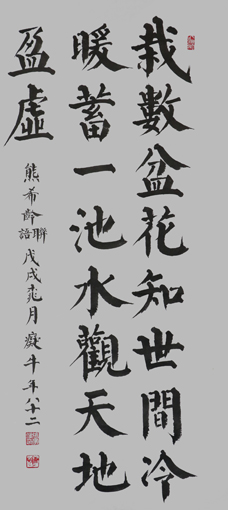 栽數盆花知世間冷
暖蓄一池水觀天地
盈虛
熊希齡聯語戊戌桃月癡牛年八十二